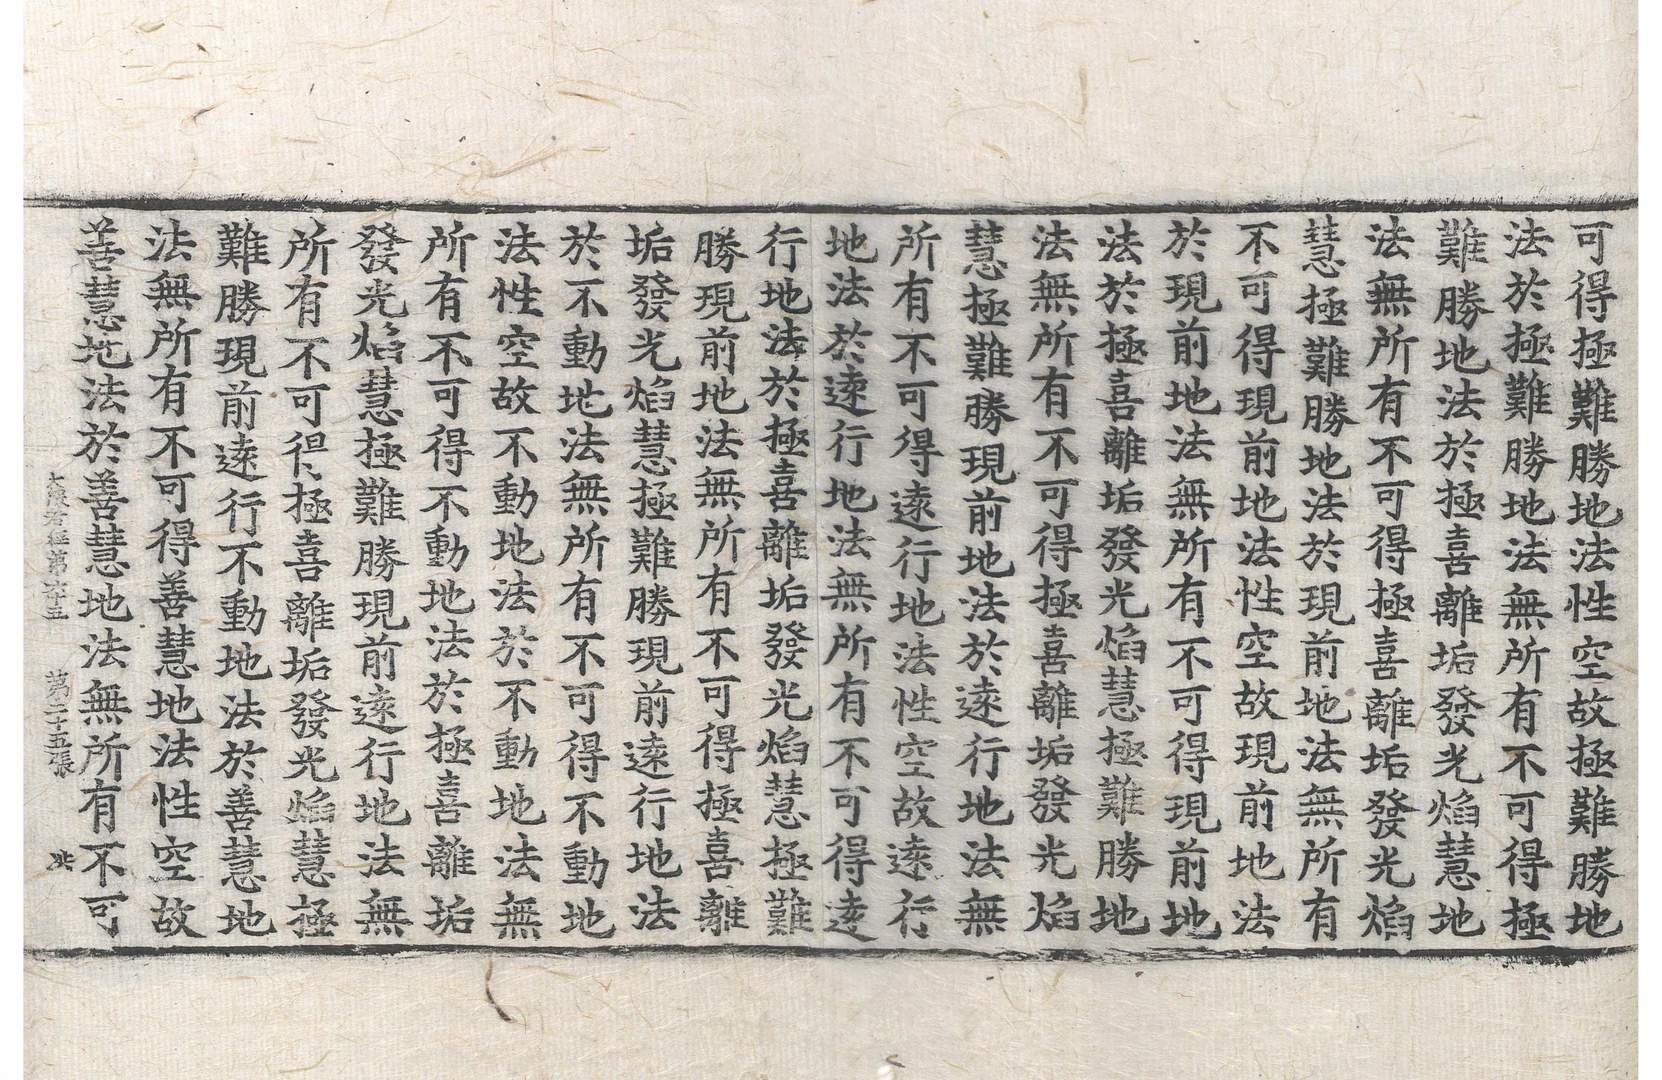 可得極難勝地法性空故極難勝地
法於極難勝地法無所有不可得極
難勝地法於極喜離垢發光焰慧地
法無所有不可得極喜離垢發光焰
慧極難勝地法於現前地法無所有
不可得現前地法性空故現前地法
於現前地法無所有不可得現前地
法於極喜離垢發光焰慧極難勝地
法無所有不可得極喜離垢發光焰
慧極難勝現前地法於遠行地法無
所有不可得遠行地法性空故遠行
地法於遠行地法無所有不可得遠
行地法於極喜離垢發光焰慧極難
勝現前地法無所有不可得極喜離
垢發光焰慧極難勝現前遠行地法
於不動地法無所有不可得不動地
法性空故不動地法於不動地法無
所有不可得不動地法於極喜離垢
發光焰慧極難勝現前遠行地法無
所有不可得極喜離垢發光焰慧極
難勝現前遠行不動地法於善慧地
法無所有不可得善慧地法性空故
善慧地法於善慧地法無所有不可
大般若經第六十五 第二十五張 洪